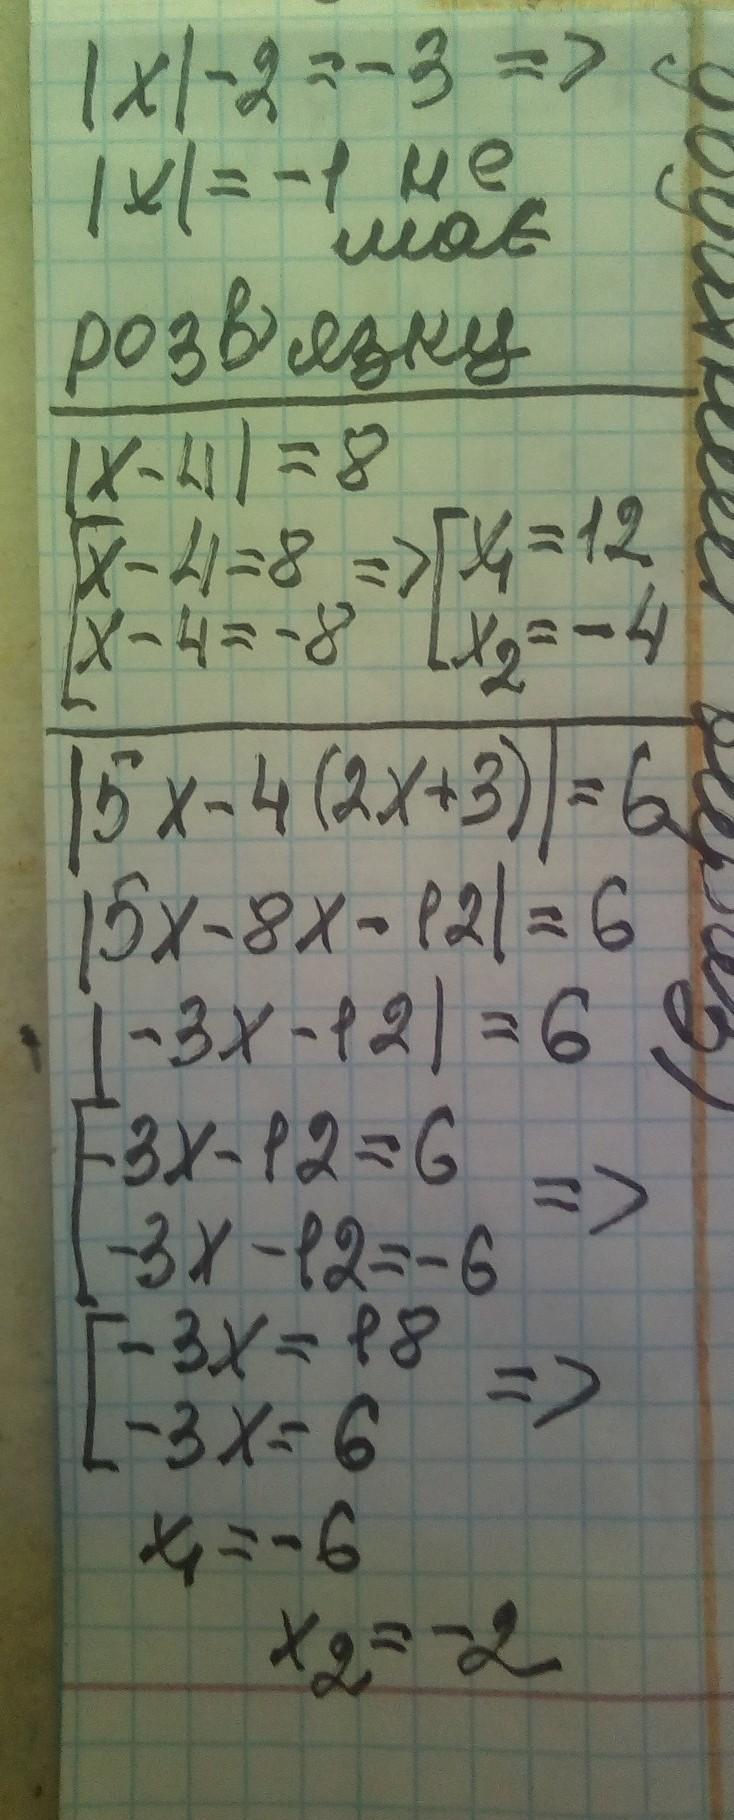 |x|-2=-3 =>
|x|=-1 не
має
розв'язку
|x-4|=8
[x-4=8 => [x₁=12
[x-4=-8 [x₂=-4
|5x-4(2x+3)|=6
|5x-8x-12|=6
|-3x-12|=6
[-3x-12=6 =>
[-3x-12=-6
[-3x=18 =>
[-3x=6
x₁=-6
x₂=-2